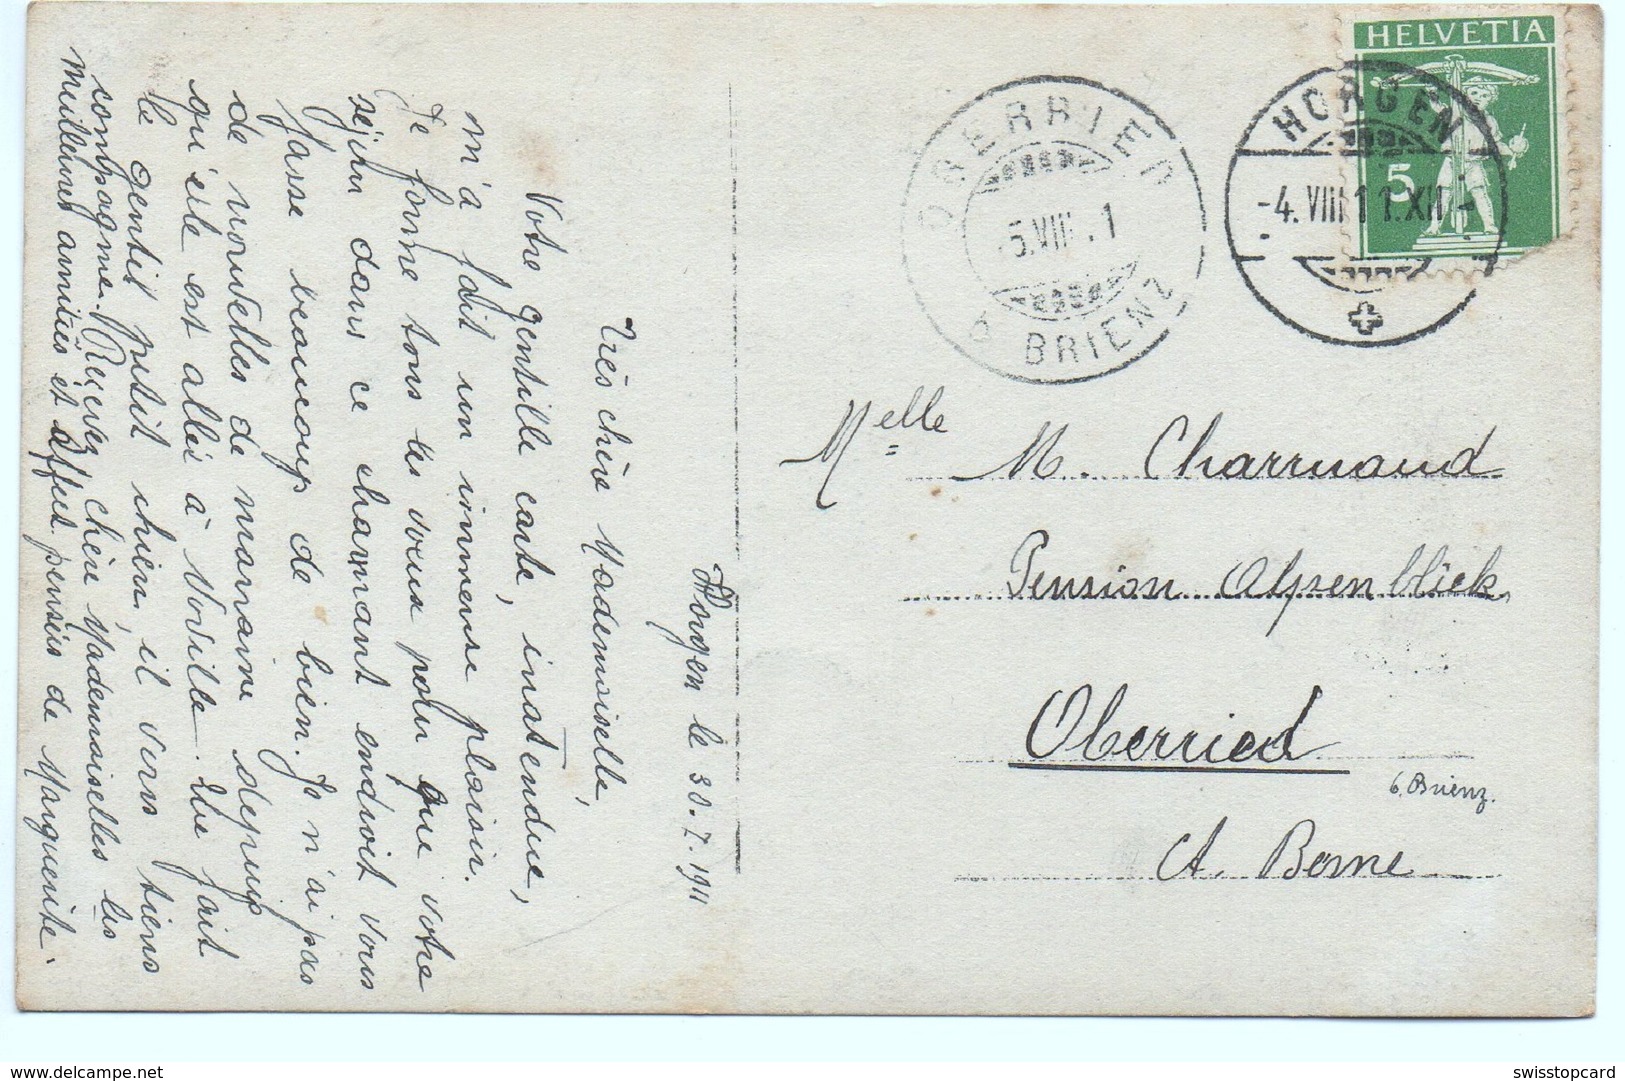 Horgen le 30.7.1911
Très chère Mademoiselle,
Votre gentille carte, inattendue,
m'a fait un immense plaisir.
Je forme tous les vœux pour que votre
séjour dans ce charmant endroit vous
fasse beaucoup de bien. Je n'ai pas
de nouvelles de marraine depuis
qu'elle est allés à Voville. Elle fait
le gentil petit chien, il vous tiens
compagnie. Recevez, chère Mademoiselles les
meilleures amitiés et affect. pensées de Marguerite.
HELVETIA
5
HORGEN
-4.VIII 11.XII-
OBERRIED
5.VIII.1
b BRIENZ
Melle M. Charmand
Pension Alpenblick
Oberried
b. Brienz.
Ct. Berne
swisstopcard